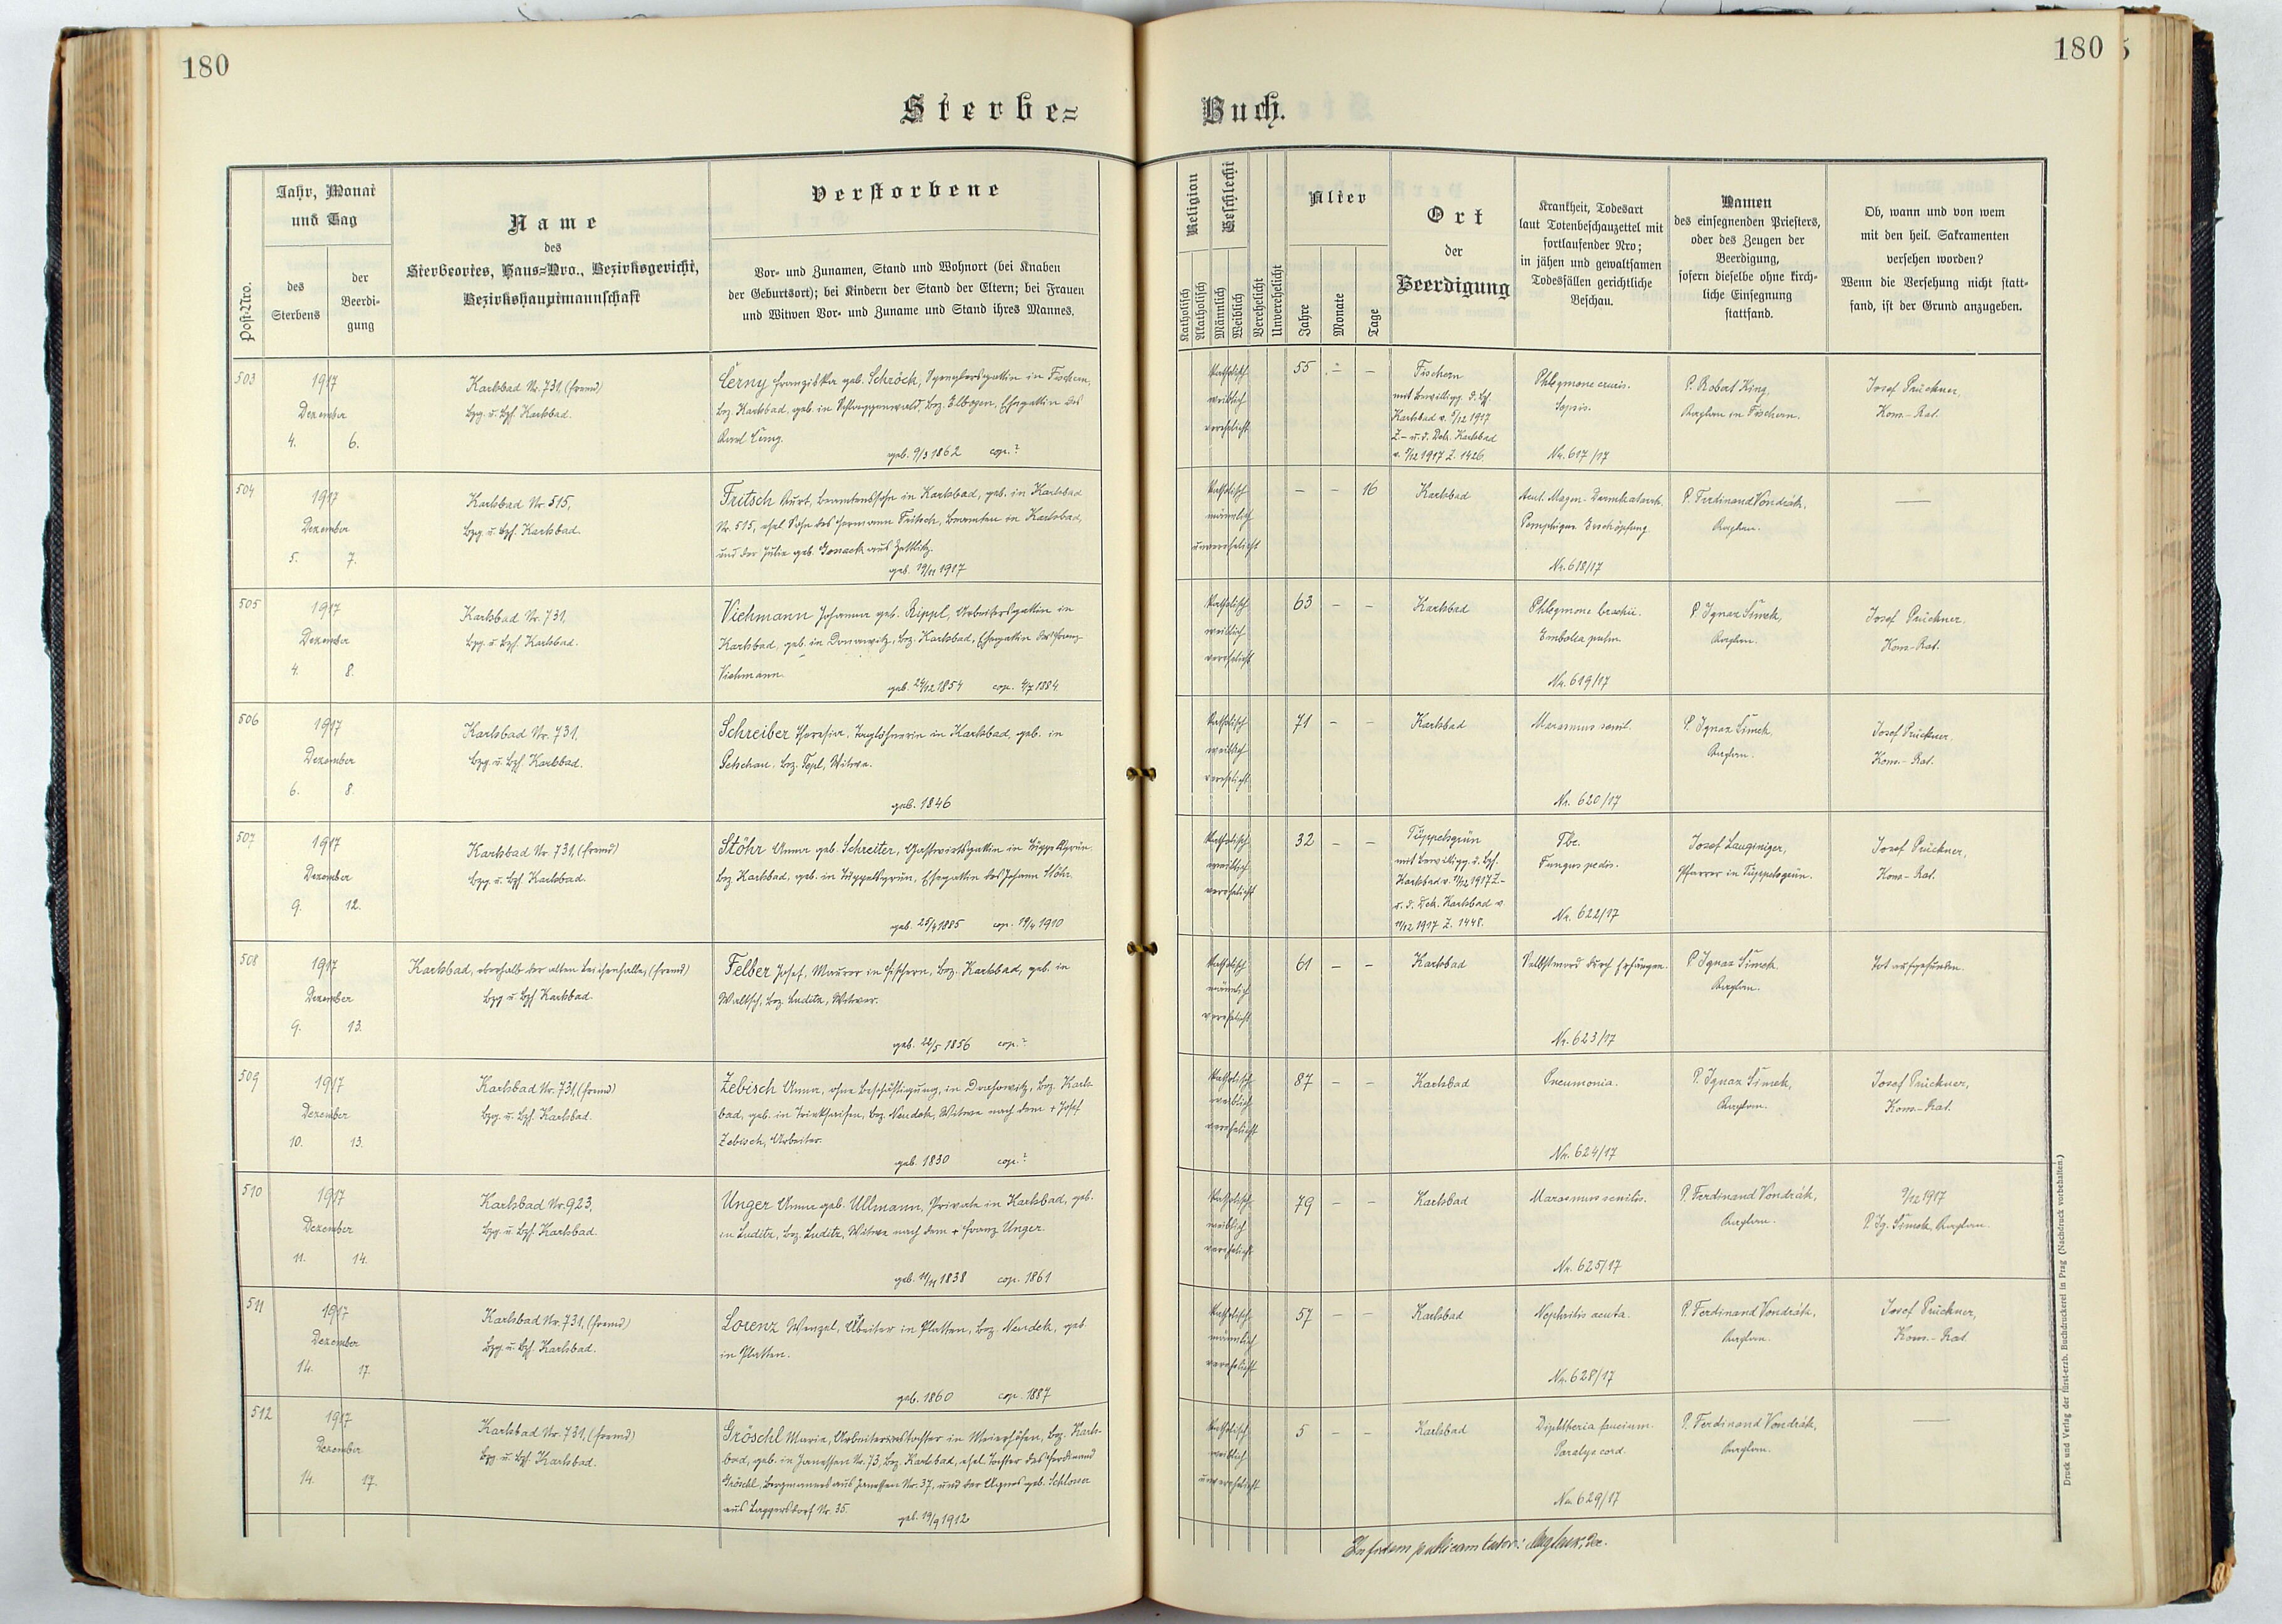 180
180
5
Sterbe=
Buch.
Post-Nro.
Jahr, Monat
und Tag
des
Sterbens
der
Beerdi-
gung
Name
des
Sterbeortes, Haus=Nro., Bezirksgericht,
Bezirkshauptmannschaft
Verstorbene
Vor- und Zunamen, Stand und Wohnort (bei Knaben
der Geburtsort); bei Kindern der Stand der Eltern; bei Frauen
und Witwen Vor- und Zuname und Stand ihres Mannes.
Religion
Katholisch
Akatholisch
Geschlecht
Männlich
Weiblich
Verehelicht
Unverehelicht
Alter
Jahre
Monate
Tage
Ort
der
Beerdigung
Krankheit, Todesart
laut Totenbeschauzettel mit
fortlaufender Nro;
in jähen und gewaltsamen
Todesfällen gerichtliche
Beschau.
Namen
des einsegnenden Priesters,
oder des Zeugen der
Beerdigung,
sofern dieselbe ohne kirch-
liche Einsegnung
stattfand.
Ob, wann und von wem
mit den heil. Sakramenten
versehen worden?
Wenn die Versehung nicht statt-
fand, ist der Grund anzugeben.
503
1917
Dezember
4. 6.
Karlsbad Nr. 731, (fremd)
Bzg. u. Bzh. Karlsbad.
Černy Franziska geb. Schröck, Spenglersgattin in Fischern,
Bez. Karlsbad, geb. in Schlaggenwald, Bez. Elbogen, Ehegattin des
Karl Černy.
geb. 9/3 1862 cop. ?
katholisch
weiblich
verehelicht
55 - -
Fischern
mit Bewilligg. d. Bzh.
Karlsbad v. 5/12 1917
Z. - u. d. Dek. Karlsbad
v. 5/12 1917 Z. 1426.
Phlegmone cruris.
Sepsis.
Nr. 617/17
P. Robert King,
Kaplan in Fischern.
Josef Prückner,
Kons.-Rat.
504
1917
Dezember
5. 7.
Karlsbad Nr 515,
Bzg. u. Bzh. Karlsbad.
Fritsch Kurt, Beamtenssohn in Karlsbad, geb. in Karlsbad
Nr. 515, ehel. Sohn des Hermann Fritsch, Beamten in Karlsbad,
und der Julie geb. Gonack aus Zettlitz.
geb. 19/11 1917
katholisch
männlich
unverehelicht
- - 16
Karlsbad
Acut. Magen-Darmkatarrh.
Pemphigus. Erschöpfung
Nr. 618/17
P. Ferdinand Vondrák,
Kaplan.
505
1917
Dezember
4. 8.
Karlsbad Nr. 731,
Bzg. u. Bzh. Karlsbad.
Viehmann Johanna geb. Rippl, Arbeitersgattin in
Karlsbad, geb. in Donawitz, Bez. Karlsbad, Ehegattin des Franz
Viehmann.
geb. 24/12 1854 cop. 4/7 1884.
katholisch
weiblich
verehelicht
63 - -
Karlsbad
Phlegmone brachii.
Embolia pulm.
Nr. 619/17
P. Ignaz Šimek,
Kaplan.
Josef Prückner.
Kons.-Rat.
506
1917
Dezember
6. 8.
Karlsbad Nr. 731,
Bzg. u. Bzh. Karlsbad.
Schreiber Theresia, Taglöhnerin in Karlsbad, geb. in
Petschau, Bez. Tepl, Witwe.
geb. 1846
katholisch
weiblich
verehelicht
71 - -
Karlsbad
Marasmus senil.
Nr. 620/17
P. Ignaz Šimek,
Kaplan.
Josef Prückner.
Kons.-Rat.
507
1917
Dezember
9. 12.
Karlsbad Nr. 731, (fremd)
Bzg. u. Bzh. Karlsbad.
Stöhr Anna geb. Schreiter, Gastwirtsgattin in Tüppelsgrün,
Bez. Karlsbad, geb. in Tüppelsgrün, Ehegattin des Johann Stöhr.
geb. 25/4 1885 cop. 19/4 1910
katholisch
weiblich
verehelicht
32 - -
Tüppelsgrün
mit Bewilligg. d. Bzh.
Karlsbad v. 11/12 1917 Z -
u. d. Dek. Karlsbad v.
11/12 1917 Z. 1448.
Tbc.
Fungus pedis.
Nr. 622/17
Josef Lauginiger,
Pfarrer in Tüppelsgrün.
Josef Prückner,
Kons.-Rat.
508
1917
Dezember
9. 13.
Karlsbad, oberhalb der alten Leichenhalle, (fremd)
Bzg. u. Bzh. Karlsbad.
Felber Josef, Maurer in Fischern, Bez. Karlsbad, geb. in
Waltsch, Bez. Luditz, Witwer.
geb. 22/5 1856 cop. ?
katholisch
männlich
verehelicht
61 - -
Karlsbad
Selbstmord durch Erhängen.
Nr. 623/17
P. Ignaz Šimek.
Kaplan.
Tot aufgefunden.
509
1917
Dezember
10. 13.
Karlsbad Nr. 731, (fremd)
Bzg. u. Bzh. Karlsbad.
Zebisch Anna, ohne Beschäftigung, in Drahowitz, Bez. Karls-
bad, geb. in Trinkseifen, Bez. Neudek, Witwe nach dem + Josef
Zebisch, Arbeiter.
geb. 1830 cop. ?
katholisch
weiblich
verehelicht
87 - -
Karlsbad
Pneumonia.
Nr. 624/17
P. Ignaz Šimek,
Kaplan.
Josef Prückner,
Kons.-Rat.
510
1917
Dezember
11. 14.
Karlsbad Nr. 923,
Bzg. u. Bzh. Karlsbad.
Unger Anna geb. Ullmann, Private in Karlsbad, geb.
in Luditz, Bez. Luditz, Witwe nach dem + Franz Unger.
geb. 11/11 1838 cop. 1861
katholisch
weiblich
verehelicht
79 - -
Karlsbad
Marasmus senilis.
Nr. 625/17
P. Ferdinand Vondrák,
Kaplan.
9/12 1917
P. Ig. Šimek, Kaplan.
511
1917
Dezember
14. 17.
Karlsbad Nr. 731, (fremd)
Bzg. u. Bzh. Karlsbad.
Lorenz Wenzel, Arbeiter in Platten, Bez. Neudek, geb.
in Platten.
geb. 1860 cop. 1887
katholisch
männlich
verehelicht
57 - -
Karlsbad
Nephritis acuta.
Nr. 628/17
P. Ferdinand Vondrák,
Kaplan.
Josef Prückner,
Kons.-Rat.
512
1917
Dezember
14. 17.
Karlsbad Nr. 731, (fremd)
Bzg. u. Bzh. Karlsbad.
Gröschl Marie, Arbeiterstochter in Meierhöfen, Bez. Karls-
bad, geb. in Janessen Nr. 73, Bez. Karlsbad, ehel. Tochter des Ferdinand
Gröschl, Bergmannes aus Janessen Nr. 37, und der Agnes geb. Schlosser
aus Nr. 35.
geb. 19/9 1912
katholisch
weiblich
unverehelicht
5 - -
Karlsbad
Diphtheria faucium.
Paralys cord.
Nr. 629/17
P. Ferdinand Vondrák,
Kaplan.
In fidem publicam
Druck und Verlag der fürst-erzb. Buchdruckerei in Prag (Nachdruck vorbehalten.)